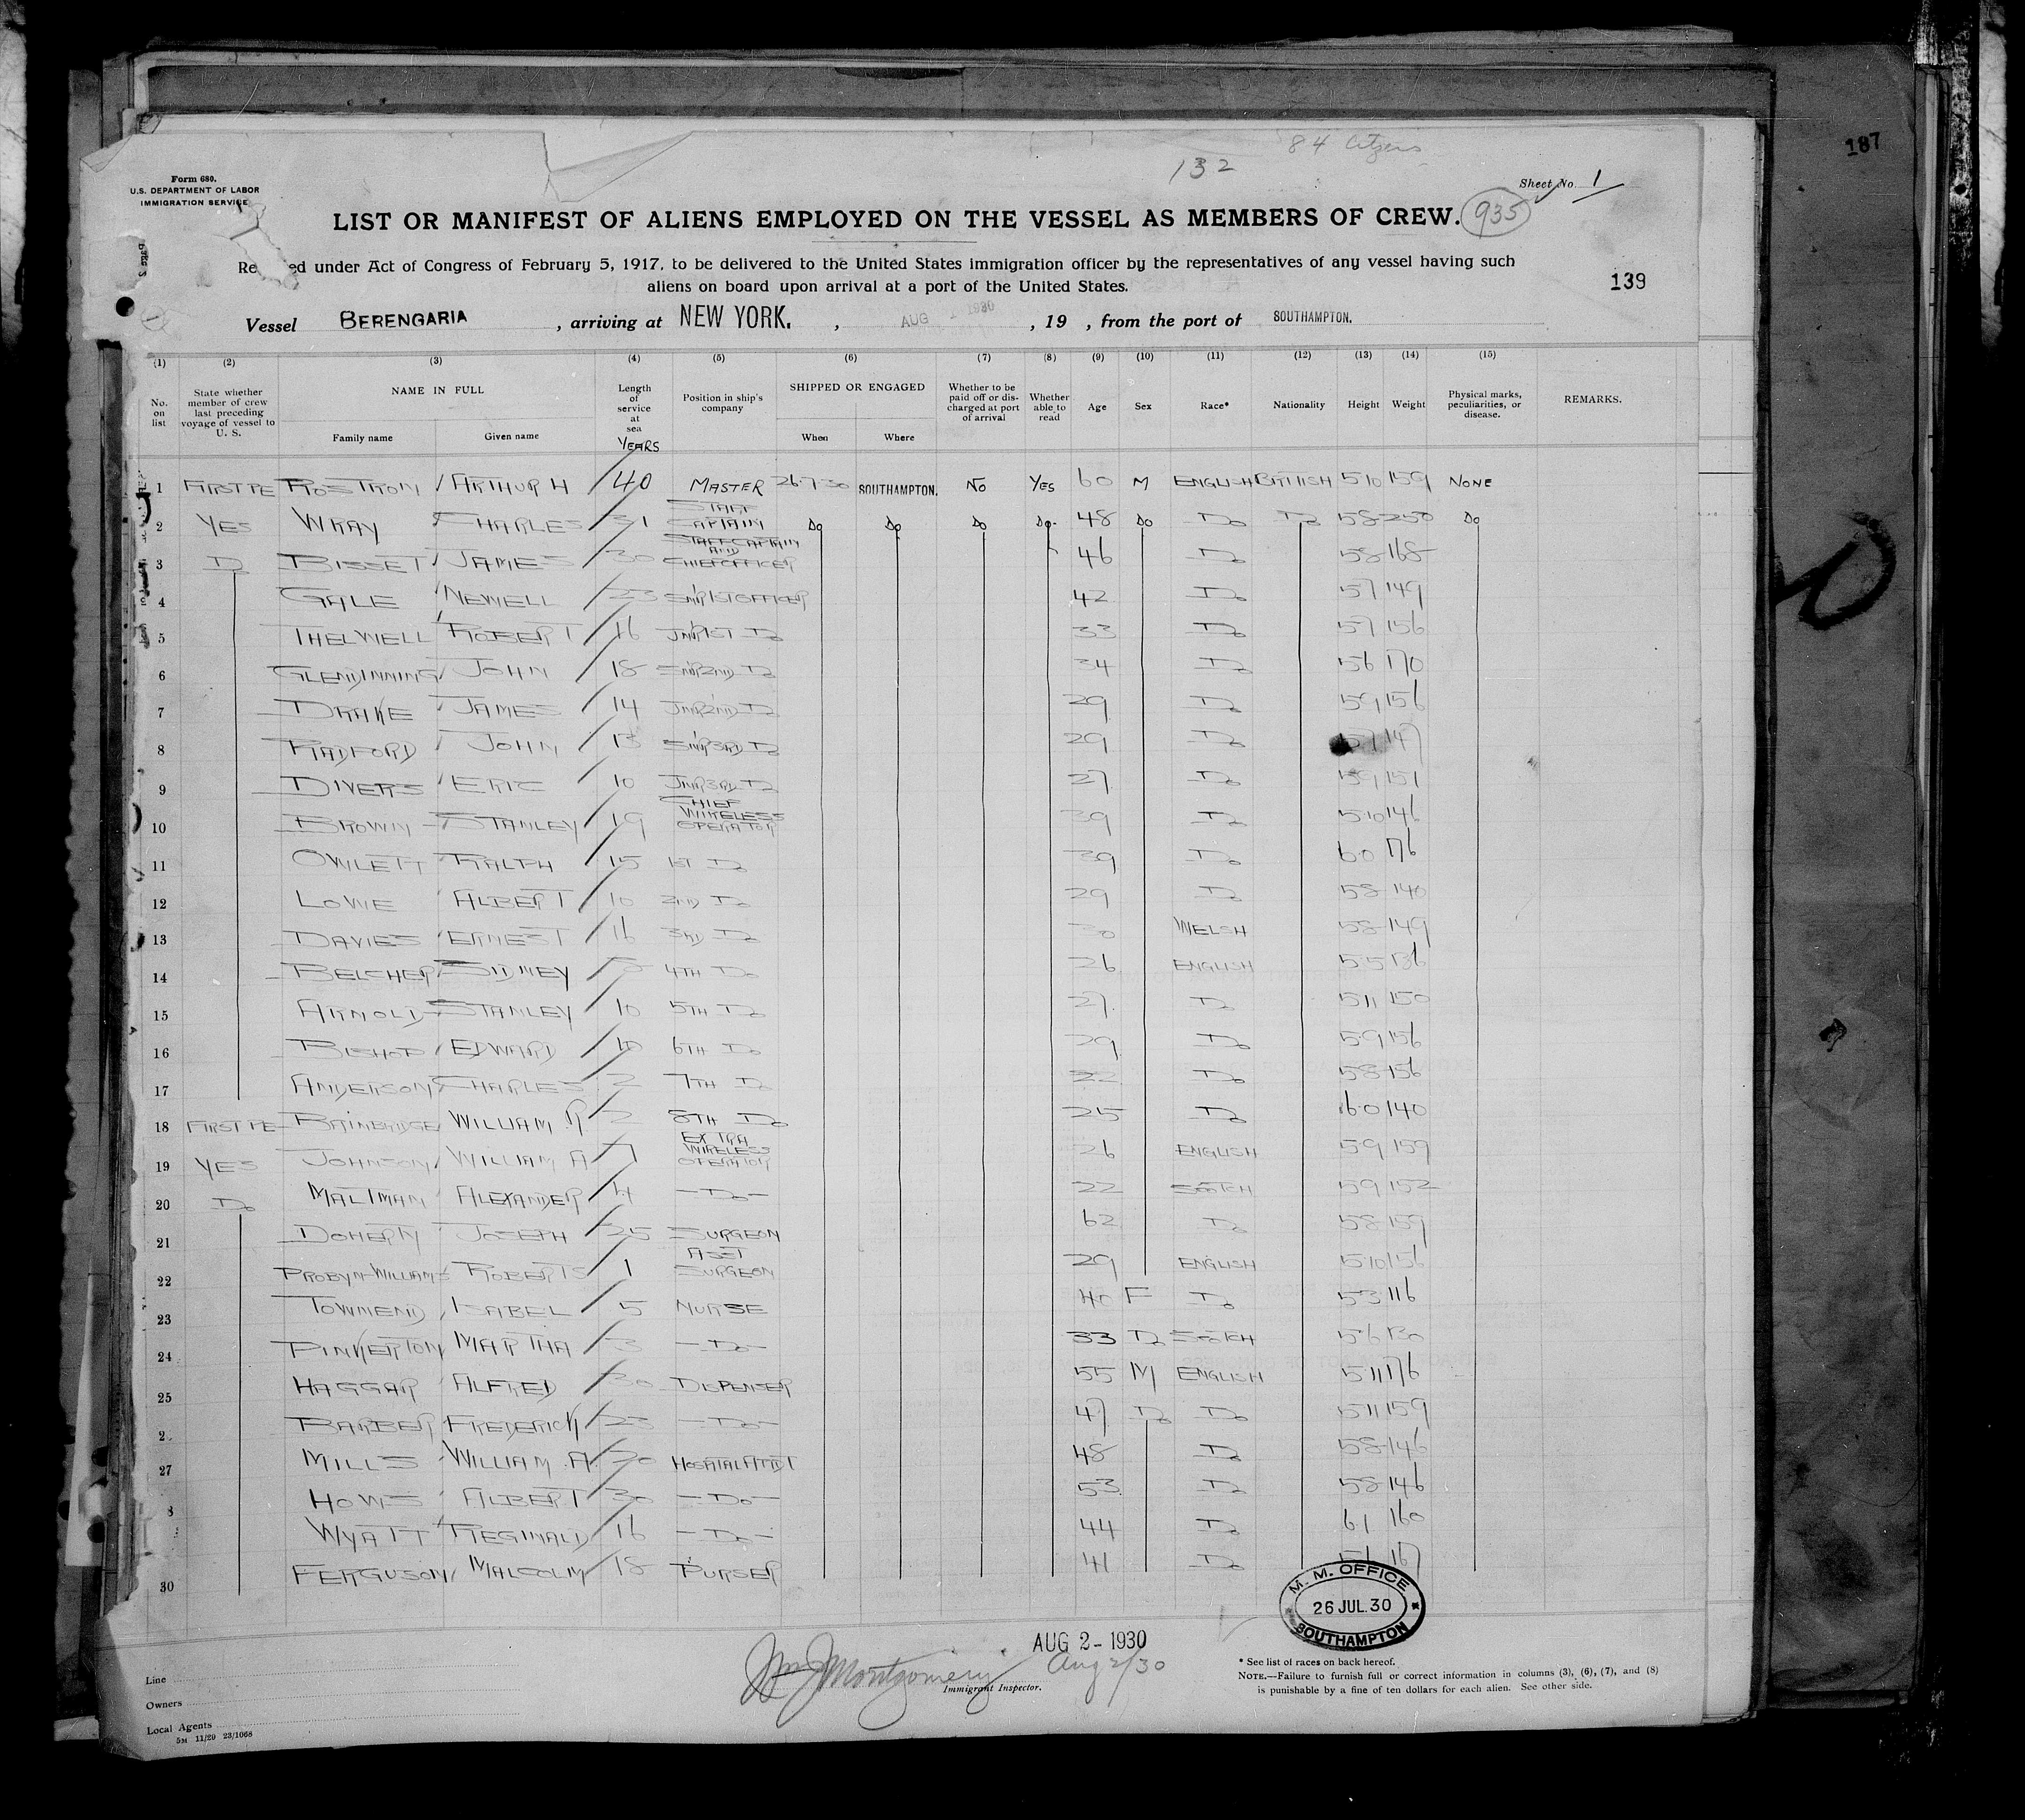 187
84 Citizens
132
Form 680.
U.S. DEPARTMENT OF LABOR
IMMIGRATION SERVICE
Sheet No. 1
LIST OR MANIFEST OF ALIENS EMPLOYED ON THE VESSEL AS MEMBERS OF CREW. 935
ed under Act of Congress of February 5, 1917, to be delivered to the United States immigration officer by the representatives of any vessel having such
aliens on board upon arrival at a port of the United States.
139
Vessel BERENGARIA , arriving at NEW YORK. , AUG 1930 , 19 , from the port of SOUTHAMPTON.
(1) (2) (3) (4) (5) (6) (7) (8) (9) (10) (11) (12) (13) (14) (15)
No. on list State whether member of crew last preceding voyage of vessel to U. S. NAME IN FULL Family name Given name Length of service at sea YEARS Position in ship's company SHIPPED OR ENGAGED When Where Whether to be paid off or discharged at port of arrival Whether able to read Age Sex Race* Nationality Height Weight Physical marks, peculiarities, or disease. REMARKS.
1 FIRST ROSTRON ARTHUR H 40 MASTER 26-7-30 SOUTHAMPTON. NO YES 60 M ENGLISH BRITISH 5 10 159 NONE
2 YES WRAY CHARLES 31 STAFF CAPTAIN DO DO DO DO 48 DO DO DO 5 8 250 DO
3 DO BISSET JAMES 30 STAFF CAPTAIN AND CHIEF OFFICER 46 DO 5 8 168
4 GALE NEWELL 23 SNR 1ST OFFICER 42 DO 5 7 149
5 THELWELL ROBERT 16 JNR 1ST DO 33 DO 5 7 156
6 GLENDINNING JOHN 18 SNR 2ND DO 34 DO 5 6 170
7 DRAKE JAMES 14 JNR 2ND DO 29 DO 5 9 156
8 RADFORD JOHN 13 SNR 3RD DO 29 DO 147
9 DIVERS ERIC 10 JNR 3RD DO 27 DO 5 9 151
10 BROWN STANLEY 19 CHIEF WIRELESS OPERATOR 39 DO 5 10 146
11 OWLETT RALPH 15 1ST DO 39 DO 6.0 176
12 LOWE ALBERT 10 2ND DO 29 DO 5 8 140
13 DAVIES ERNEST 16 3RD DO 30 WELSH 5 8 149
14 BELCHER SIDNEY 4TH DO 26 ENGLISH 5 5 136
15 ARNOLD STANLEY 10 5TH DO 27 DO 5 11 150
16 BISHOP EDWARD 10 6TH DO 29 DO 5 9 156
17 ANDERSON CHARLES 2 7TH DO 22 DO 5 8 156
18 FIRST BAINBRIDGE WILLIAM R 2 8TH DO 25 DO 6.0 140
19 YES JOHNSON WILLIAM A 7 EXTRA WIRELESS OPERATOR 26 ENGLISH 5 9 159
20 DO MALTMAN ALEXANDER 4 -DO- 22 SCOTCH 5 9 152
21 DOHERTY JOSEPH 25 SURGEON 62 DO 5 8 159
22 PROBYN-WILLIAMS ROBERT S 1 ASST SURGEON 29 ENGLISH 5 10 156
23 TOWNEND ISABEL 5 NURSE 40 F DO 5 3 116
24 PINKERTON MARTHA 3 -DO- 33 DO SCOTCH 5 6 130
25 HAGGAR ALFRED 30 DISPENSER 55 M ENGLISH 5 11 176
2 BARBER FREDERICK 23 -DO- 47 DO DO 5 11 159
27 MILLS WILLIAM A 20 HOSPITAL ATTDT 48 DO 5 8 146
8 HOWS ALBERT 30 -DO- 53 DO 5 8 146
WYATT REGINALD 16 -DO- 44 DO 6 1 160
30 FERGUSON MALCOLM 18 PURSER 41 DO 167
M. M. OFFICE
26 JUL. 30
SOUTHAMPTON
AUG 2 - 1930
Wm J Montgomery Aug 2/30
Immigrant Inspector.
* See list of races on back hereof.
NOTE.—Failure to furnish full or correct information in columns (3), (6), (7), and (8)
is punishable by a fine of ten dollars for each alien. See other side.
Line
Owners
Local Agents
5M 11/29 23/1068